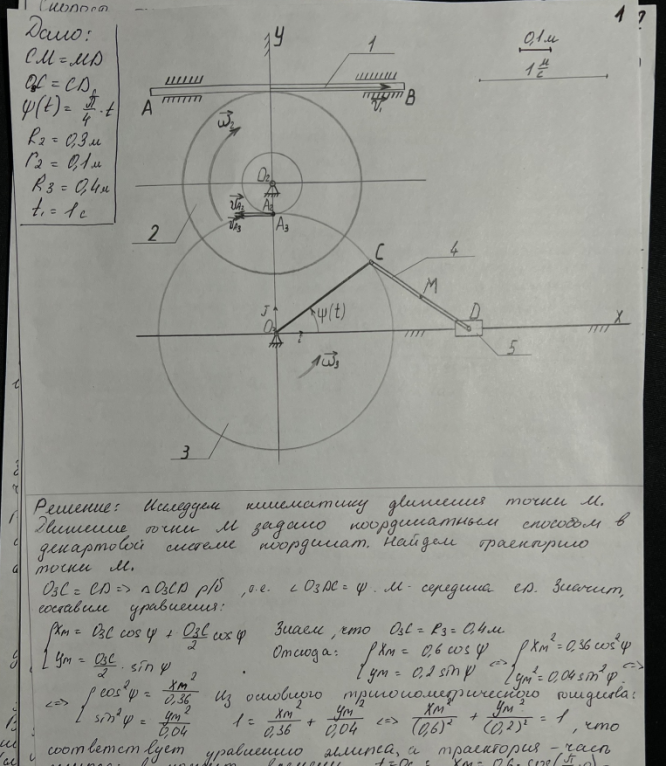 1
Дано:
CM = MD
O₃C = CD
φ(t) = π/4 · t
R₂ = 0,3 м
r₂ = 0,1 м
R₃ = 0,4 м
t₁ = 1 с
y
1
0,1 м
1 м/с
A
B
v₁
ω₂
O₂
A₂
v_A₂
v_A₃
A₃
2
C
4
M
D
x
5
J
φ(t)
O₃
i
ω₃
3
Решение: Исследуем кинематику движения точки М.
Движение точки М задано координатным способом в
декартовой системе координат. Найдем траекторию
точки М.
O₃C = CD => △O₃CD р/б, т.е. ∠O₃DC = φ. М - середина CD. Значит,
составим уравнения:
{ xм = O₃C cos φ + O₃C/2 cos φ Знаем, что O₃C = R₃ = 0,4 м.
{ yм = O₃C/2 · sin φ Отсюда: { xм = 0,6 cos φ yм = 0,2 sin φ <=> { xм² = 0,36 cos² φ yм² = 0,04 sin² φ <=>
<=> { cos² φ = xм²/0,36 sin² φ = yм²/0,04 Из основного тригонометрического тождества:
1 = xм²/0,36 + yм²/0,04 <=> xм²/(0,6)² + yм²/(0,2)² = 1, что
соответствует уравнению эллипса, а траектория - часть